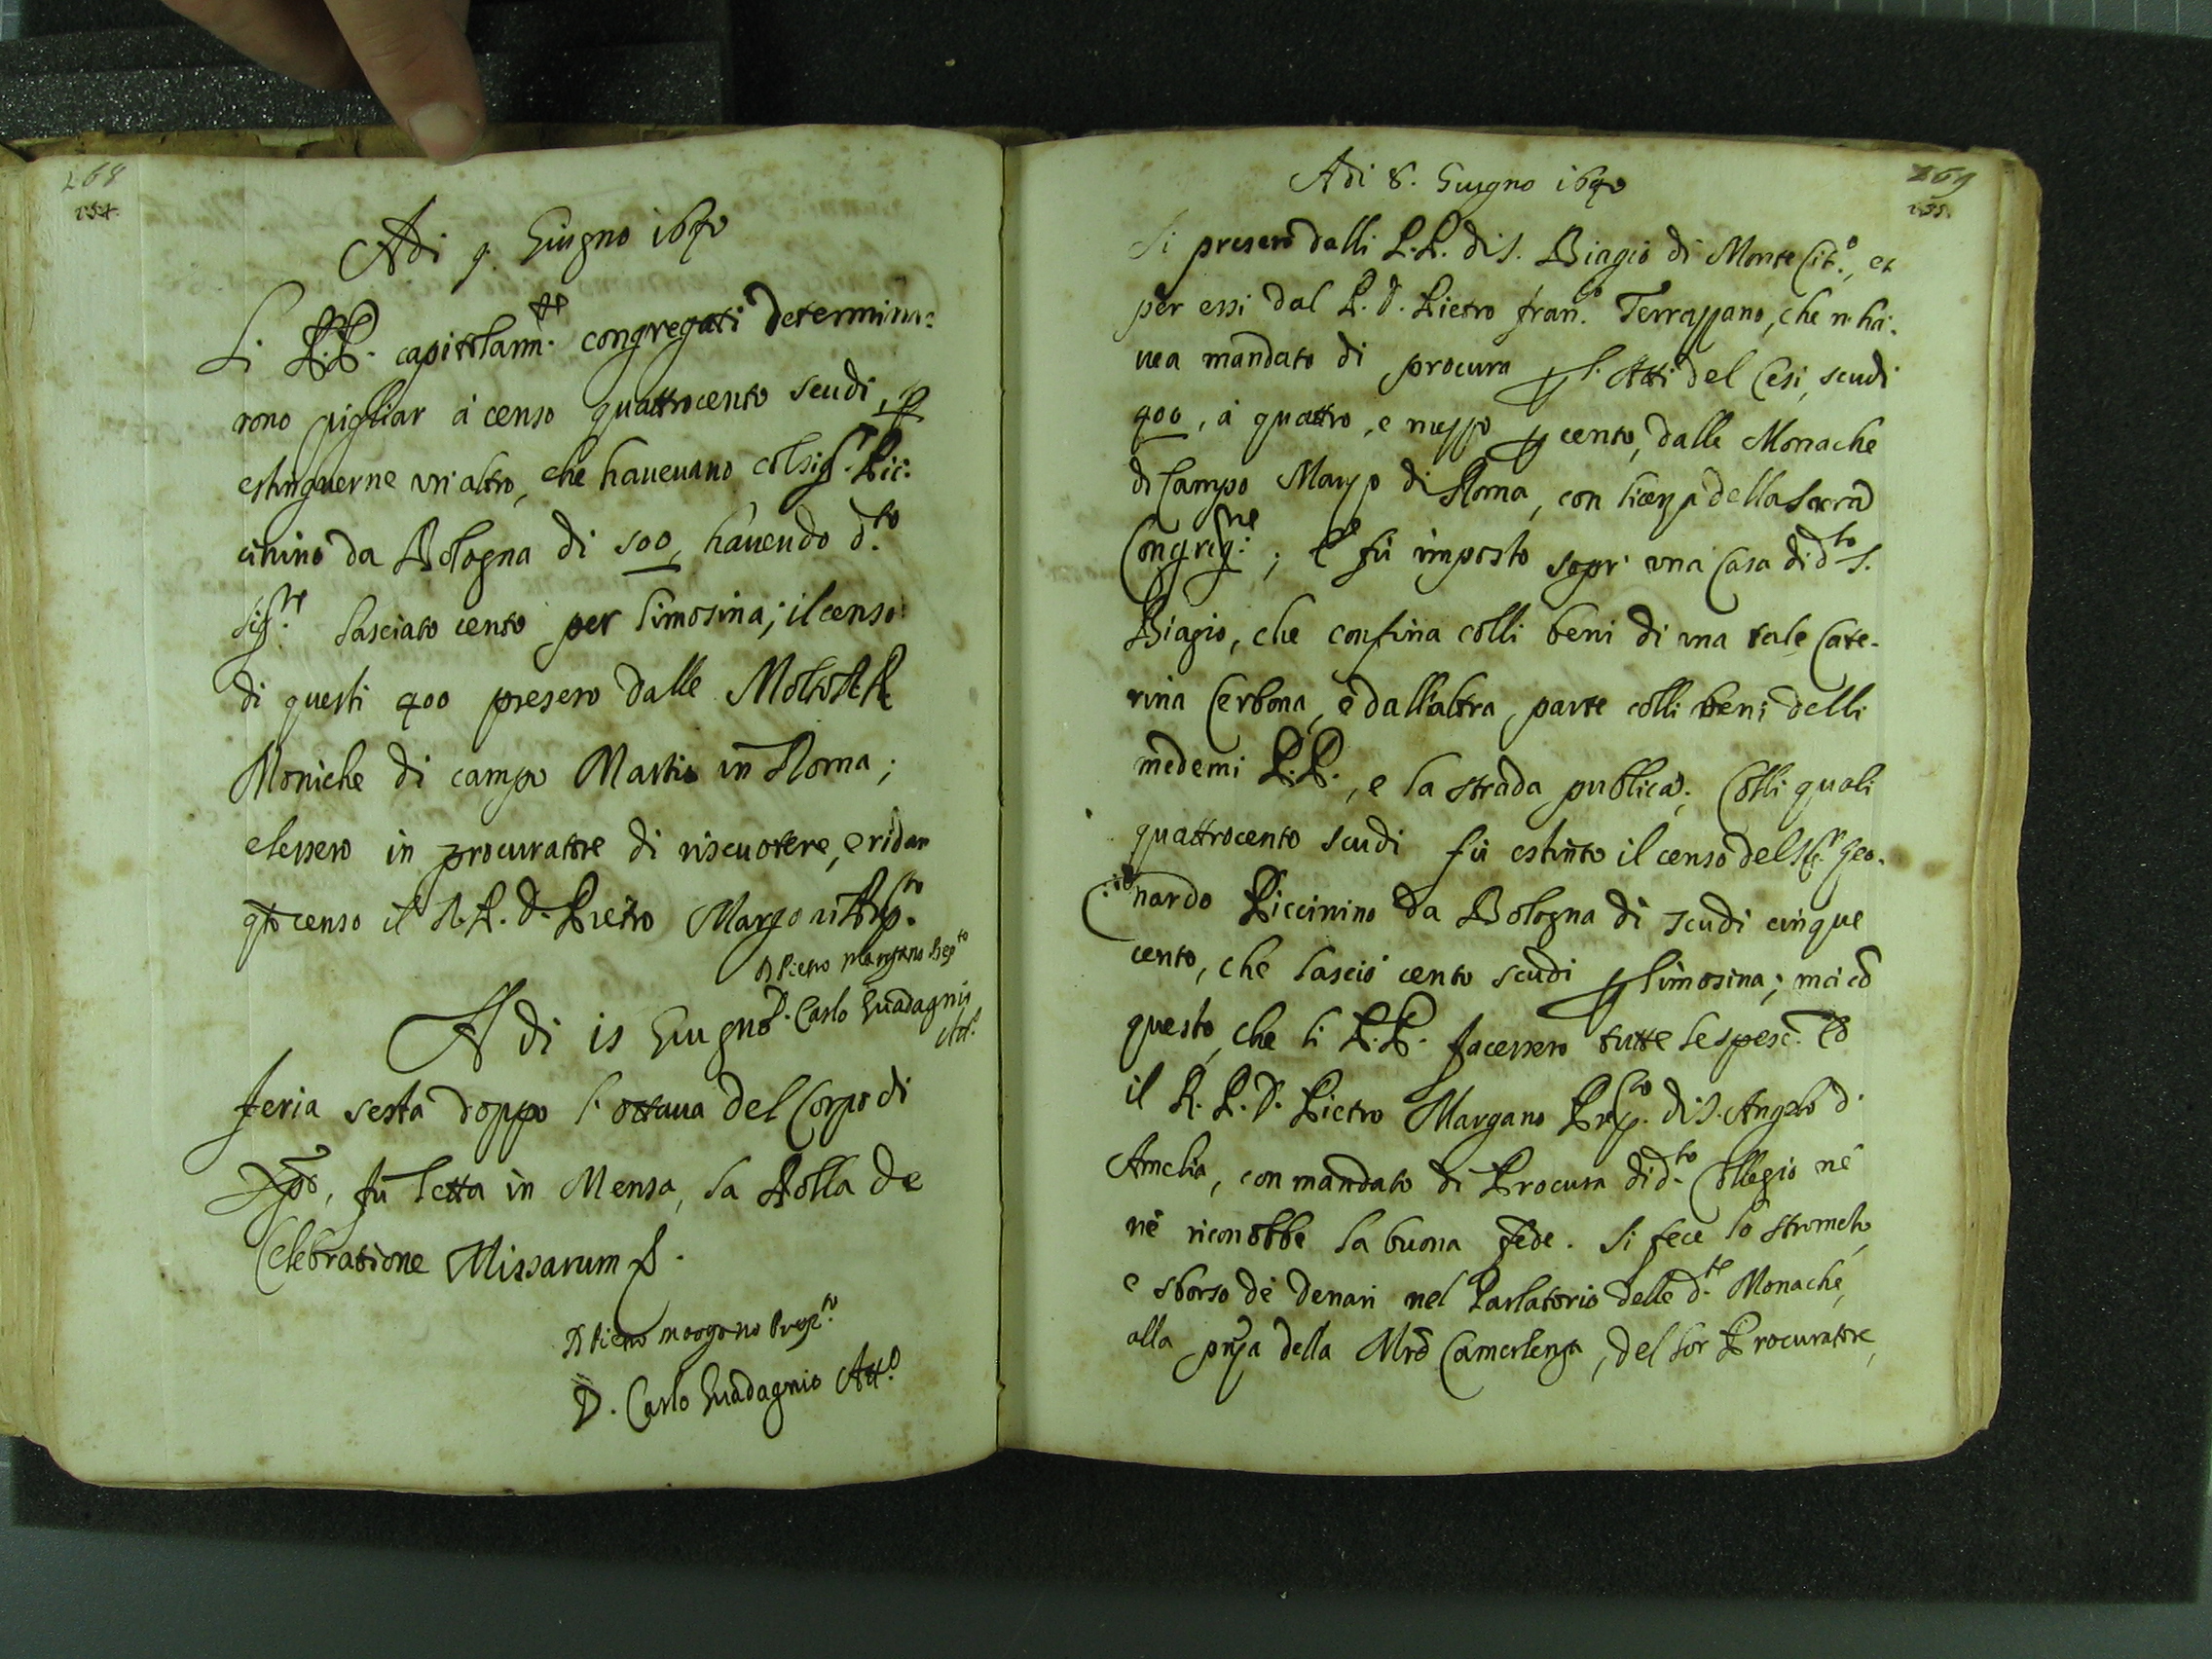 268
254.
Adi 4. Giugno 1640
Li PP. capitolarm.te congregati determina:
rono pigliar à censo quattrocento scudi, p
estinguerne un'altro, che haueuano col Sig.r Pic:
cinino da Bologna di 500, hauendo d.to
Sig.re lasciato cento per limosina; il censo
di questi 400 presero dalle Molto RR
Moniche di campo Martio in Roma;
elessero in procuratore di riscuotere, e ridar
qto censo il R.P. D. Pietro Margano Prep.to
D Pietro Margano Prep.to
D. Carlo Guadagnio
Att.o
A di 15 Giugno
Feria sesta doppo l'ottaua del Corpo di
Xpo, fù letta in Mensa, la Bolla de
Celebratione Missarum &.
D Pietro Margano Prep.to
D. Carlo Guadagnio Att.o
269
255.
Adi 8. Giugno 1640
Si presero dalli P.P. di S. Biagio di Monte Cit.o, et
per essi dal P. D. Pietro Fran.co Terrazzano, che n'ha:
uea mandato di procura p l'Atti del Cesi, scudi
400, à quattro, e mezzo p cento, dalle Monache
di Campo Marzo di Roma, con licenza della Sacra
Congreg.ne; e fù imposto sopr' una Casa di d.to S.
Biagio, che confina colli beni di una tale Cate-
rina Cerbona, e dall'altra, parte colli beni delli
medemi P.P., e la strada publica; Colli quali
quattrocento scudi fù estinto il censo del Sig.r Leo-
nardo Piccinino da Bologna di scudi cinque
cento, che lasciò cento scudi p limosina; mà cõ
questo, che li P.P. facessero tutte le spese. Ed
il R.P.D. Pietro Margano Prep.to di S. Angelo d'
Amelia, con mandato di Procura di d.to Collegio nè
nè riconobbe la buona fede. Si fece lo stromẽto,
e sborso dè denari nel Parlatorio delle d.te Monache,
alla pñza della Mrẽ Camerlenga, del lor Procuratore,